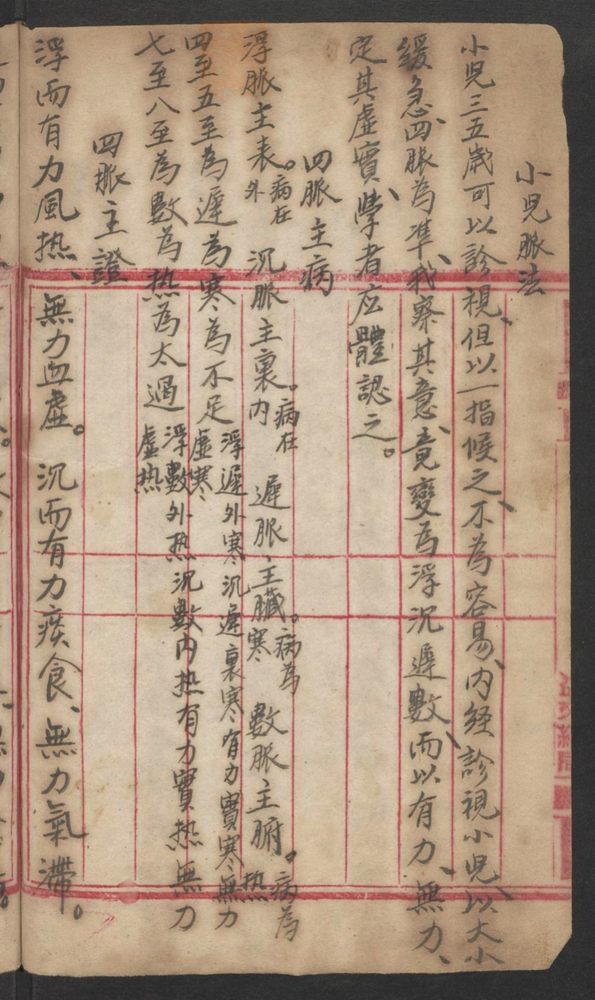 小児脈法
小児三五歲可以診視、但以一指候之、不為容易、内経診視小児、以大小
緩急、四脈為準、我察其意、竟變為浮沉遲數、而以有力、無力、
定其虛實、學者应體認之。
四脈主病
浮脈主表。病在外 沉脈主裏。病在内 遲脈、主臟。病為寒 數脈主腑。病為熱
四至五至為遲為寒為不足 浮遲外寒沉遲裏寒有力實寒無力虛寒
七至八至為數為热為太過 浮數外热沉數内热有力實热無力虛热
四脈主證
浮而有力風热、無力血虛。沉而有力痰食、無力氣滯。